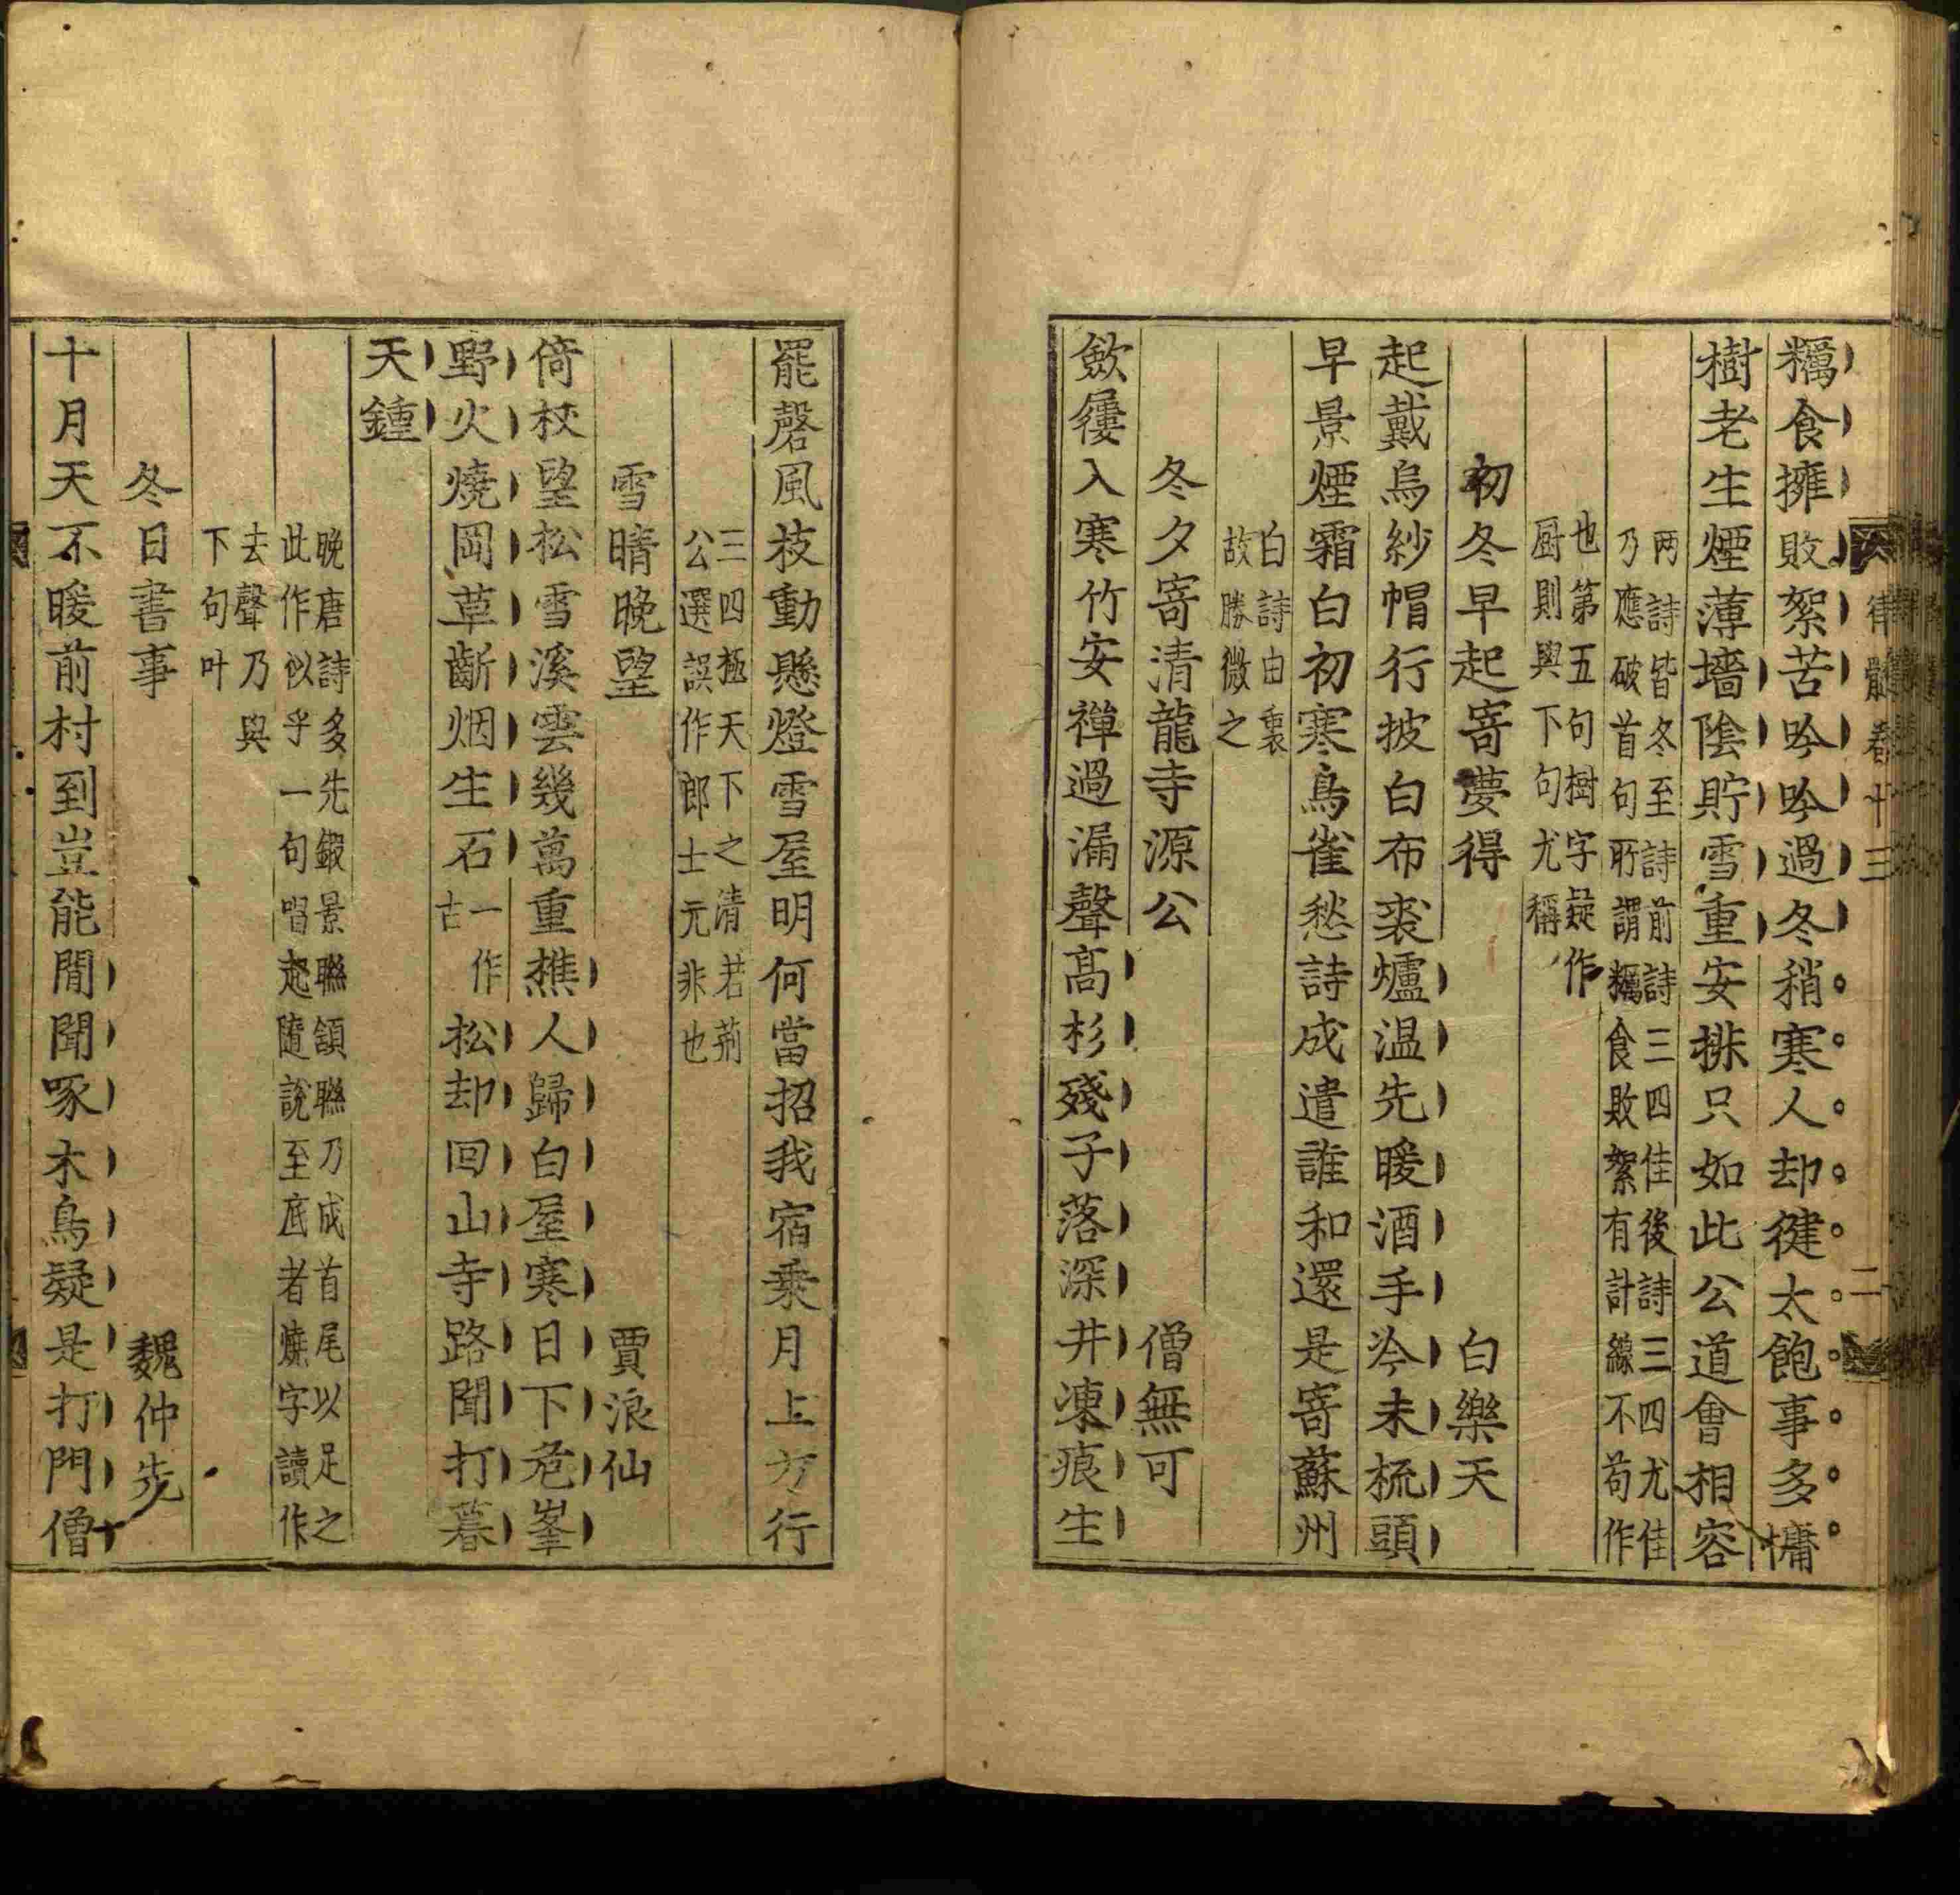 糲食擁敗絮苦吟吟過冬稍寒人却健太飽事多慵
樹老生煙薄墻陰貯雪重安排只如此公道會相容
兩詩皆冬至詩前詩三四佳後詩三四尤佳
乃應破首句所謂糲食敗絮有計線不苟作
也第五句樹字疑作
厨則與下句尤稱
初冬早起寄夢得 白樂天
起戴烏紗帽行披白布裘爐温先暖酒手冷未梳頭
早景煙霜白初寒鳥雀愁詩成遣誰和還是寄蘇州
白詩由衷
故勝微之
冬夕寄清龍寺源公 僧無可
歛屨入寒竹安禪過漏聲高杉殘子落深井凍痕生
律髓卷十三 二
罷磬風枝動懸燈雪屋明何當招我宿乘月上方行
三四極天下之清若荊
公選誤作郎士元非也
雪晴晚望 賈浪仙
倚杖望松雪溪雲幾萬重樵人歸白屋寒日下危峯
野火燒岡草斷烟生石一作古松却回山寺路聞打暮
天鍾
晚唐詩多先鍛景聯頷聯乃成首尾以足之
此作似乎一句唱起隨說至底者燒字讀作
去聲乃與
下句叶
冬日書事 魏仲先
十月天不暖前村到豈能閒聞啄木鳥疑是打門僧